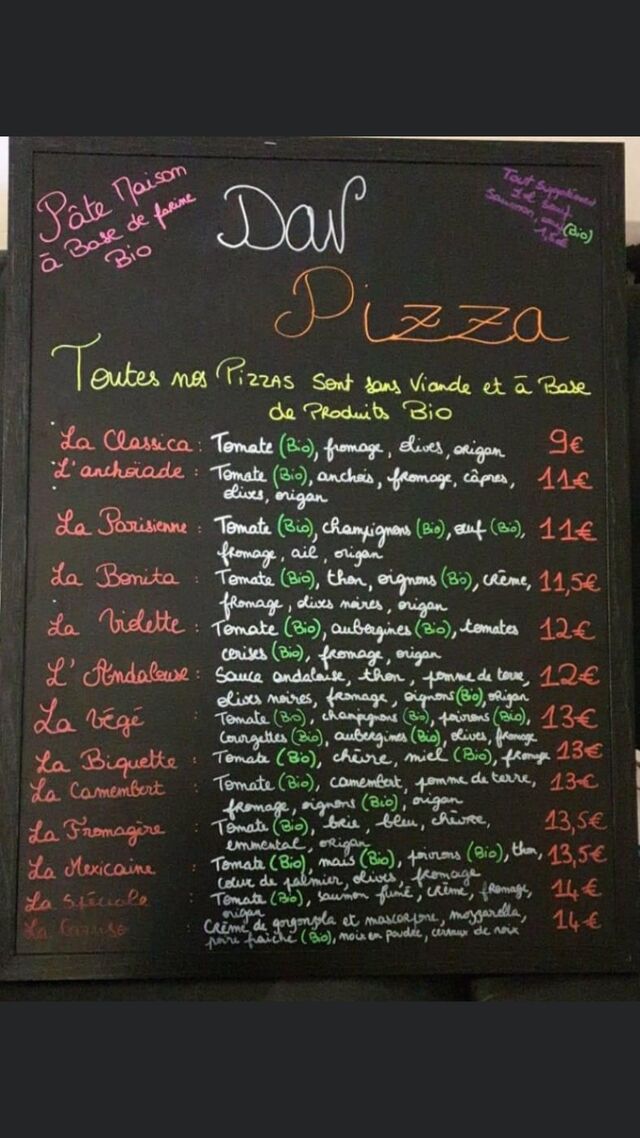 Pâte Maison
à Base de farine
Bio
Tout supplément
1€ sauf
saumon, (Bio)
1,5€
Dav
Pizza
Toutes nos Pizzas sont sans Viande et à Base
de Produits Bio
La Classica : Tomate (Bio), fromage, olives, origan 9€
L'anchoïade : Tomate (Bio), anchois, fromage, câpres, 11€
olives, origan
La Parisienne : Tomate (Bio), champignons (Bio), œuf (Bio), 11€
fromage, ail, origan
La Bonita : Tomate (Bio), thon, oignons (Bio), crème, 11,5€
fromage, olives noires, origan
La Vidette : Tomate (Bio), aubergines (Bio), tomates 12€
cerises (Bio), fromage, origan
L'Andalouse : Sauce andalouse, thon, pomme de terre, 12€
olives noires, fromage, oignons (Bio), origan
La Végé : Tomate (Bio), champignons (Bio), poivrons (Bio), 13€
courgettes (Bio), aubergines (Bio), olives, fromage
La Biquette : Tomate (Bio), chèvre, miel (Bio), fromage 13€
La Camembert : Tomate (Bio), camembert, pomme de terre, 13€
fromage, oignons (Bio), origan
La Fromagère : Tomate (Bio), brie, bleu, chèvre, 13,5€
emmental, origan
La Mexicaine : Tomate (Bio), maïs (Bio), poivrons (Bio), thon, 13,5€
cœur de palmier, olives, fromage
La Spéciale : Tomate (Bio), saumon fumé, crème, fromage, 14€
origan
La : Crème de gorgonzola et mascarpone, mozzarella, 14€
poire fraîche (Bio), noix en poudre, cerneaux de noix